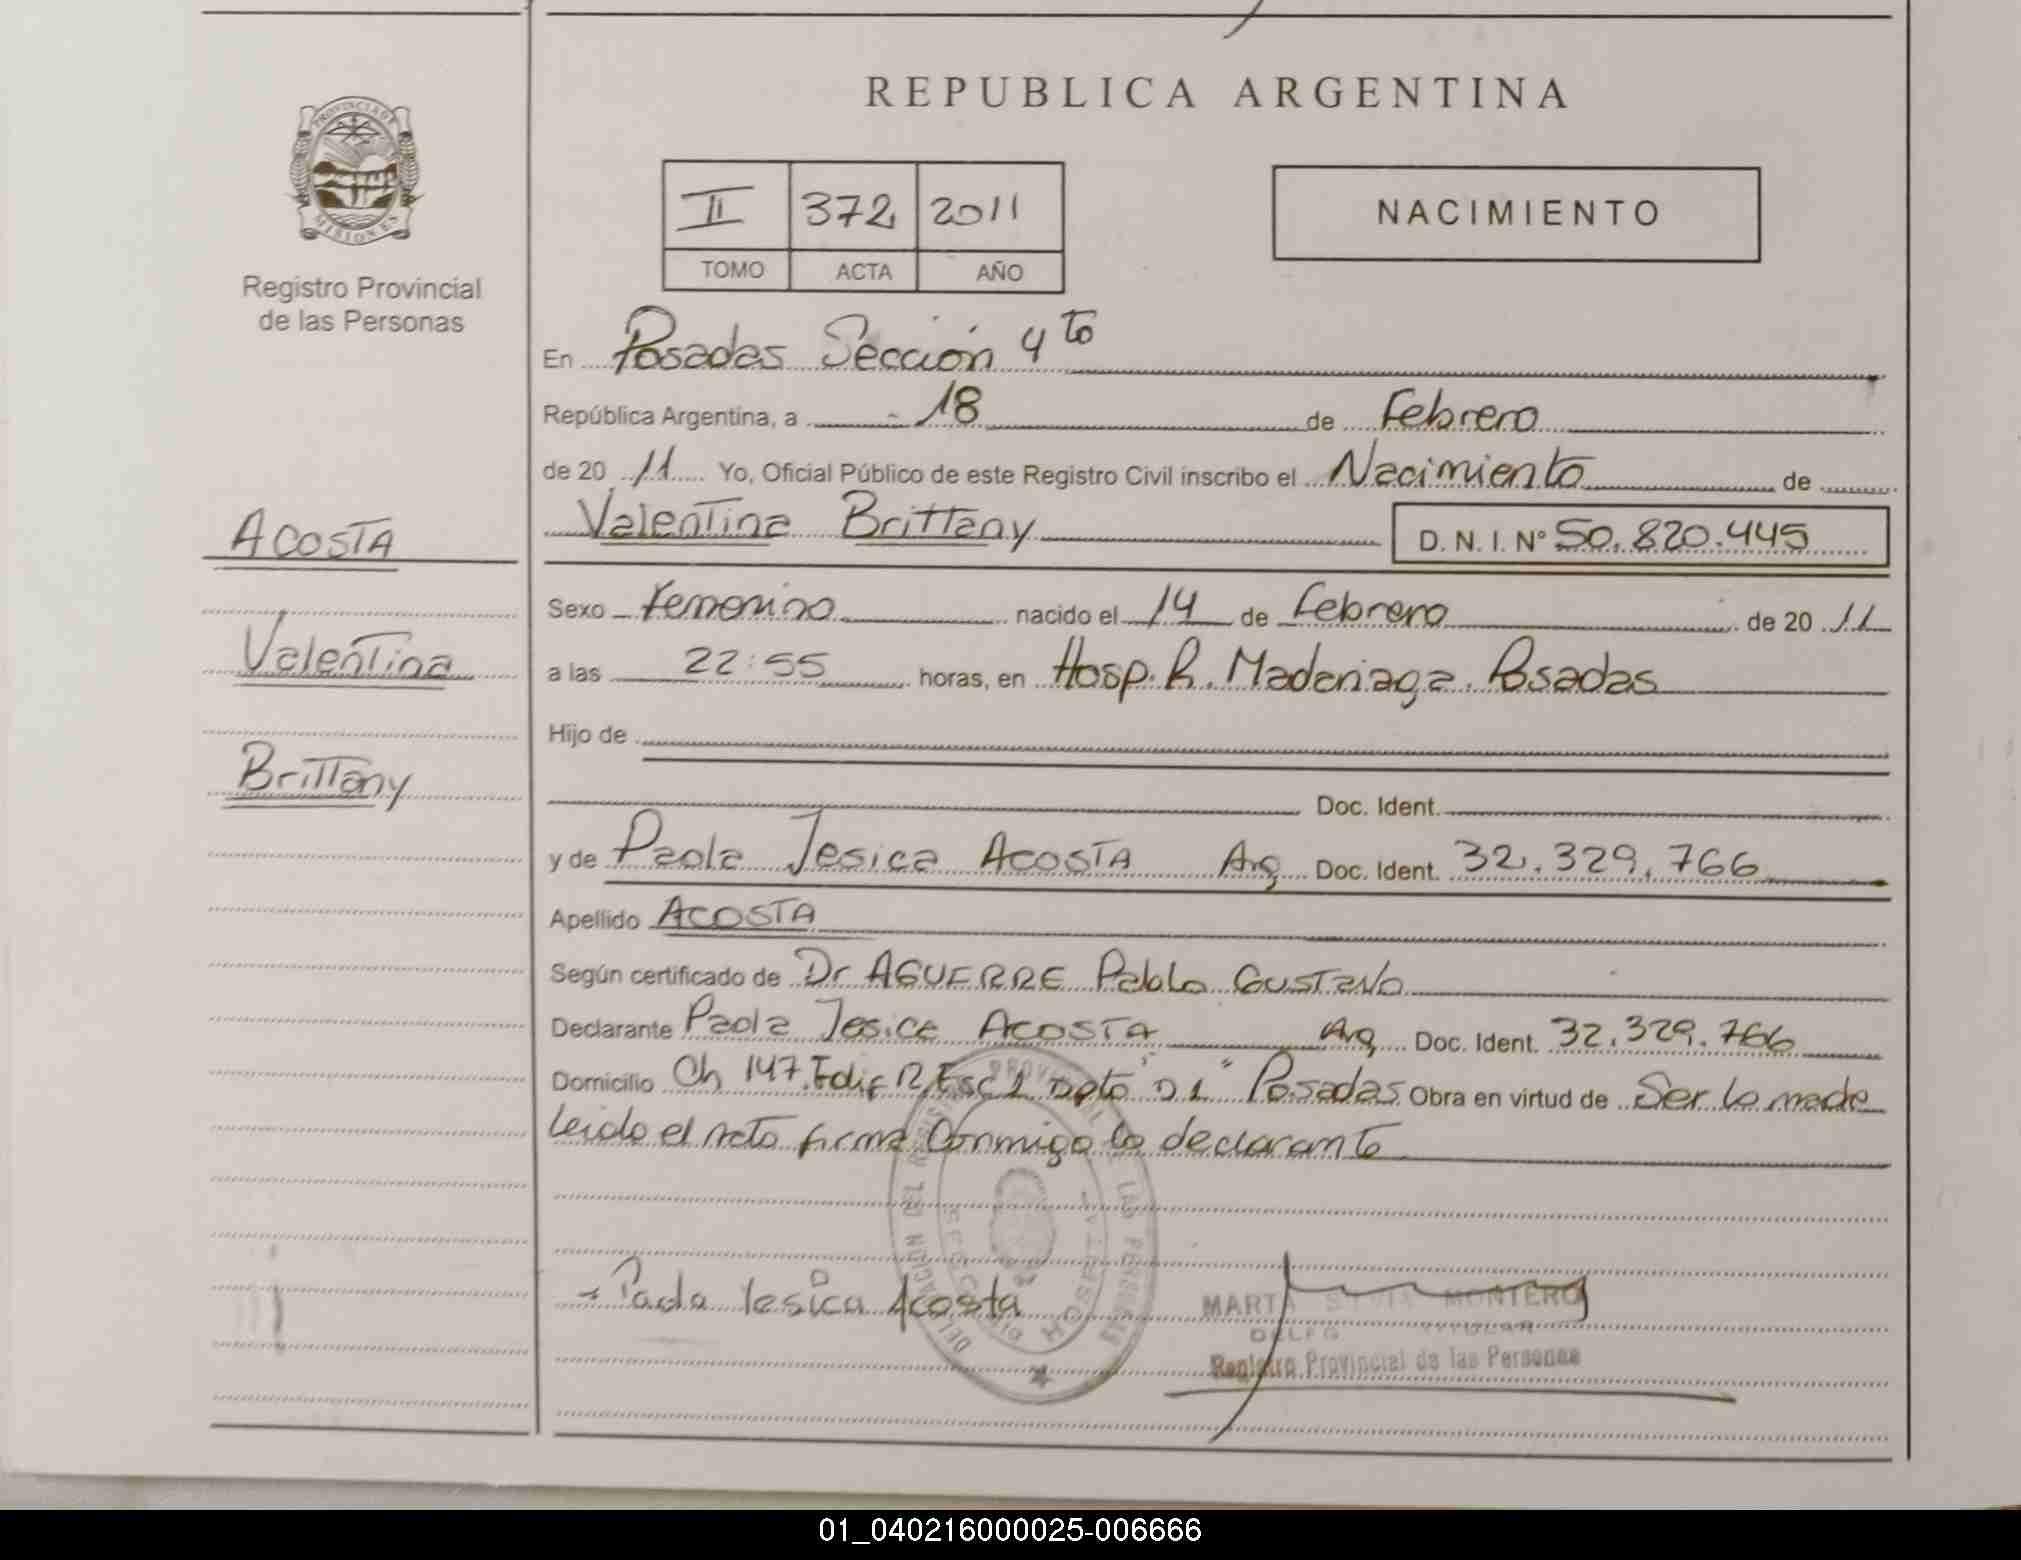 REPUBLICA ARGENTINA
PROVINCIA DE
MISIONES
Registro Provincial
de las Personas
II 372 2011
TOMO ACTA AÑO
NACIMIENTO
En Posadas Sección 4to
República Argentina, a 18 de Febrero
de 20 11 Yo, Oficial Público de este Registro Civil inscribo el Nacimiento de
Valentina Brittany D. N. I. N° 50.820.445
ACOSTA
Valentina
Brittany
Sexo Femenino nacido el 14 de Febrero de 20 11
a las 22:55 horas, en Hosp. R. Madariaga. Posadas
Hijo de
Doc. Ident.
y de Paola Jesica ACOSTA Arg Doc. Ident. 32.329.766
Apellido ACOSTA
Según certificado de Dr AGUERRE Pablo Gustavo
Declarante Paola Jesica ACOSTA Arg Doc. Ident. 32.329.766
Domicilio Ch 147. Edif R Esc 1 Dpto "D1" Posadas Obra en virtud de Ser la madre
leida el acta firma conmigo la declarante
Paola Yesica Acosta
MARTA SILVIA MONTERO
DELEG TITULAR
Registro Provincial de las Personas
01_040216000025-006666